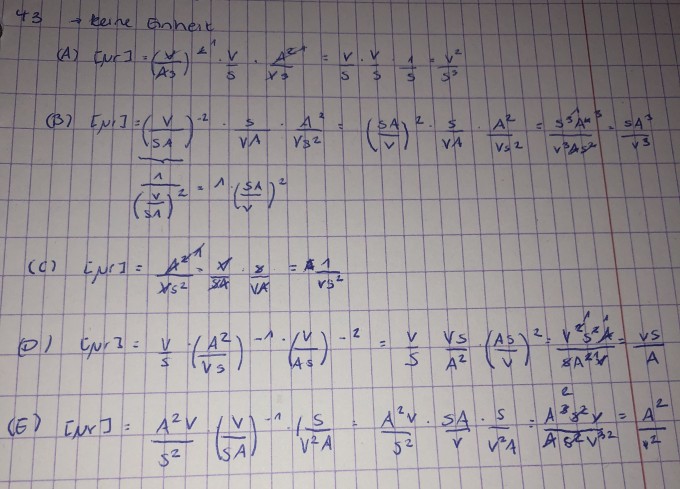 43 → keine Einheit
(A) [μr] = (V/AS)^2 1 · V/S · A^2 1/VS = V/S · V/S · 1/S = V^2/S^3
(B) [μr] = (V/SA)^-2 · S/VA · A^2/VS^2 = (SA/V)^2 · S/VA · A^2/VS^2 = S^3 A^4 3/V^3 A S^2 = SA^3/V^3
1/(V/SA)^2 = 1 · (SA/V)^2
(C) [μr] = A^2 1/VS^2 · V/SA · S/VA = 1/VS^2
(D) [μr] = V/S · (A^2/VS)^-1 · (V/AS)^-2 = V/S VS/A^2 · (AS/V)^2 = V^2 S^2 A/SA^2 V = VS/A
(E) [μr] = A^2V/S^2 · (V/SA)^-1 · (S/V^2A = A^2V/S^2 · SA/V · S/V^2A = A^3 2 S^2 V/A S^2 V^3 2 = A^2/V^2